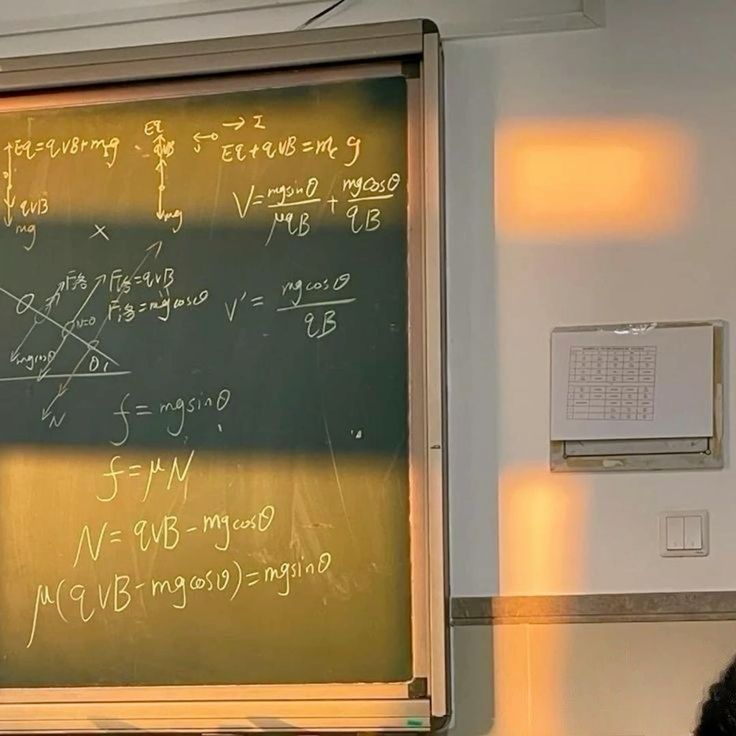 Eq = qvB + m₁g
Eq
qvB
→ I
Eq + qvB = m₂g
qvB
mg
mg
V = mgsinθ/μqB + mgcosθ/qB
×
F洛
F洛 = qvB
F洛 = mgcosθ
N=0
mgcosθ
θ
N
V' = mgcosθ/qB
f = mgsinθ
f = μN
N = qvB - mgcosθ
μ(qvB - mgcosθ) = mgsinθ